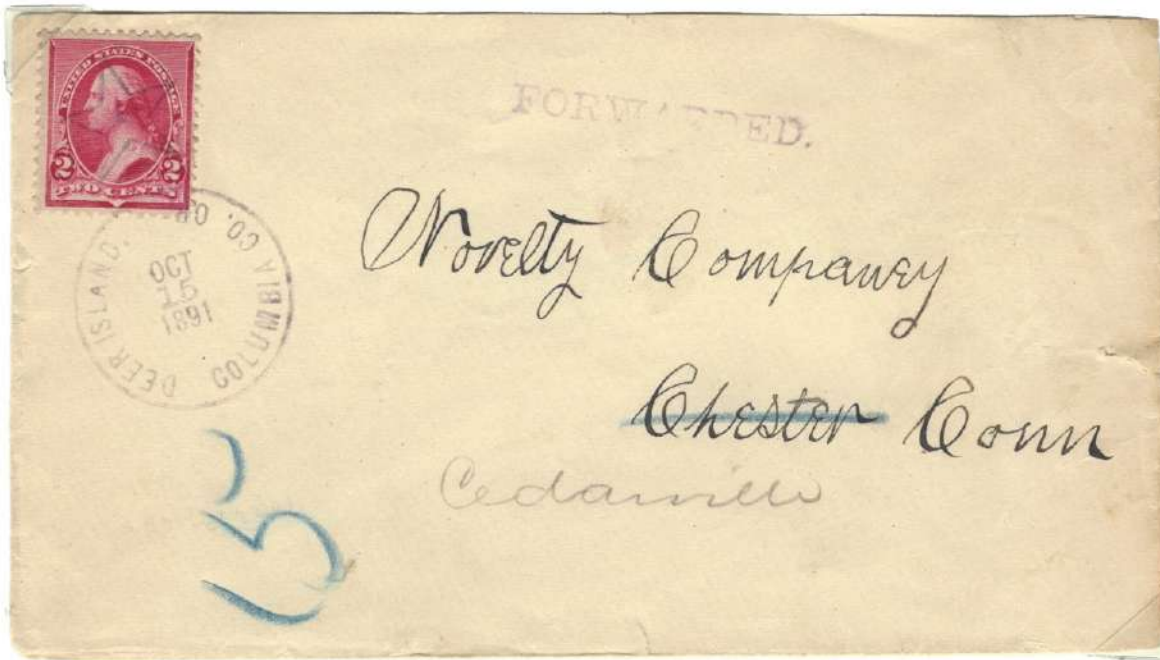 UNITED STATES POSTAGE
2 2
TWO CENTS
FORWARDED.
DEER ISLAND. COLUMBIA CO. OR
OCT
15
1891
Novelty Company
Chester Conn
Cedarville